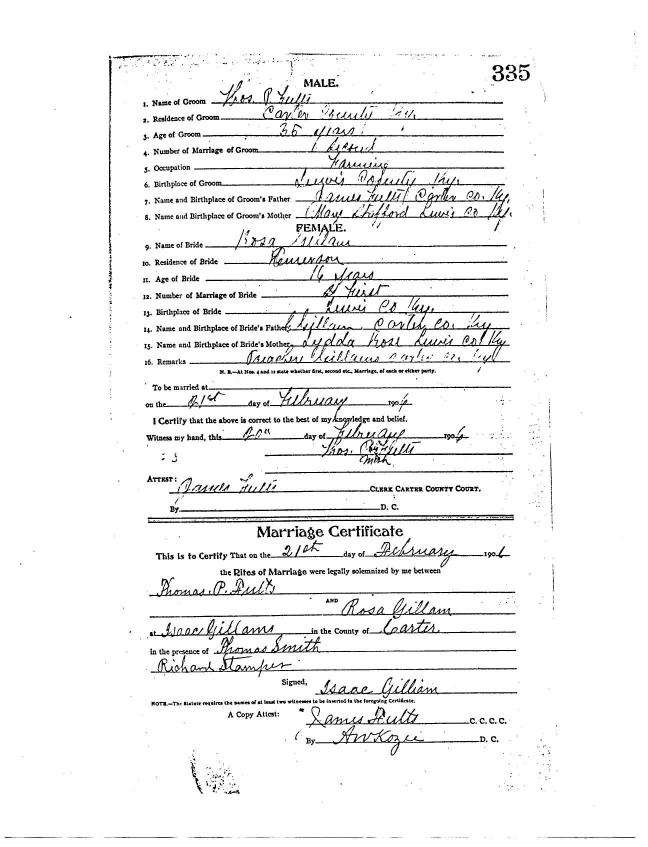 335
MALE.
1. Name of Groom Thos. P. Fults
2. Residence of Groom Carter County Ky.
3. Age of Groom 35 years
4. Number of Marriage of Groom Second
5. Occupation Farming
6. Birthplace of Groom Lewis County Ky.
7. Name and Birthplace of Groom's Father James Fults Carter Co. Ky.
8. Name and Birthplace of Groom's Mother Mary Stafford Lewis Co Ky.
FEMALE.
9. Name of Bride Rosa Gillam
10. Residence of Bride
11. Age of Bride 16 years
12. Number of Marriage of Bride First
13. Birthplace of Bride Lewis Co Ky.
14. Name and Birthplace of Bride's Father Gillam Carter Co. Ky
15. Name and Birthplace of Bride's Mother Lydda Rose Lewis Co Ky
16. Remarks Preacher Gillams Carter Co. Ky
N. B.—At Nos. 4 and 12 state whether first, second etc., Marriage, of each or either party.
To be married at
on the 21st day of February 1906
I Certify that the above is correct to the best of my knowledge and belief.
Witness my hand, this 20" day of February 1906
Thos. Fults
mark
ATTEST: James Fults CLERK CARTER COUNTY COURT.
By D. C.
Marriage Certificate
This is to Certify That on the 21st day of February 1906
the Rites of Marriage were legally solemnized by me between
Thomas. P. Fults
AND Rosa Gillam
at Isaac Gillams in the County of Carter.
in the presence of Thomas Smith
Richard Stamper
Signed, Isaac Gilliam
NOTE.—The Statute requires the names of at least two witnesses to be inserted in the foregoing Certificate.
A Copy Attest: James Fults C. C. C. C.
By AW Kozee D. C.